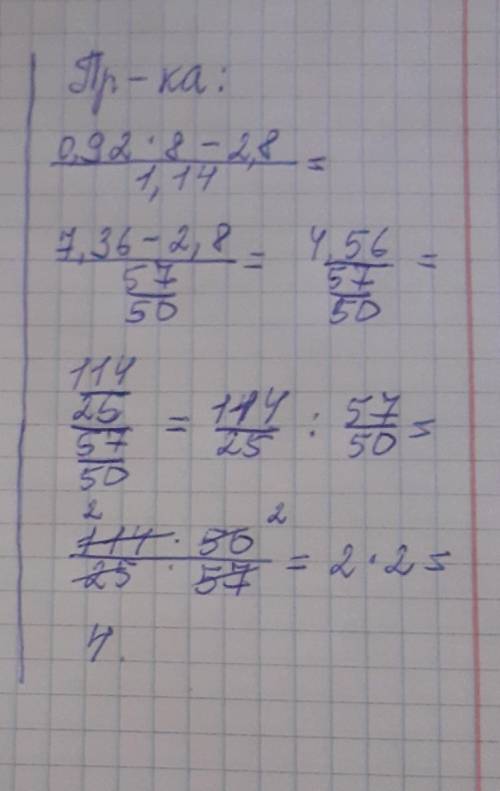 Пр-ка:
0,92 · 8 - 2,8 / 1,14 =
7,36 - 2,8 / 57/50 = 4,56 / 57/50 =
114/25 / 57/50 = 114/25 : 57/50 =
2 2
114 · 50 / 25 · 57 = 2 · 2 =
4.